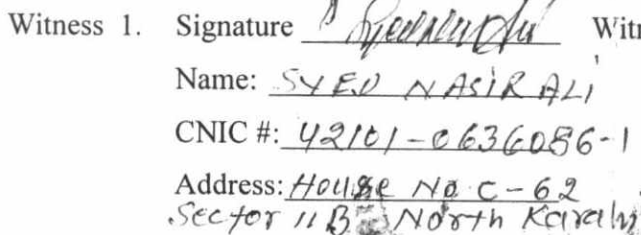 Witness 1. Signature Witn
Name: SYED NASIR ALI
CNIC #: 42101-0636086-1
Address: House No C-62
Sector 11B North Karachi